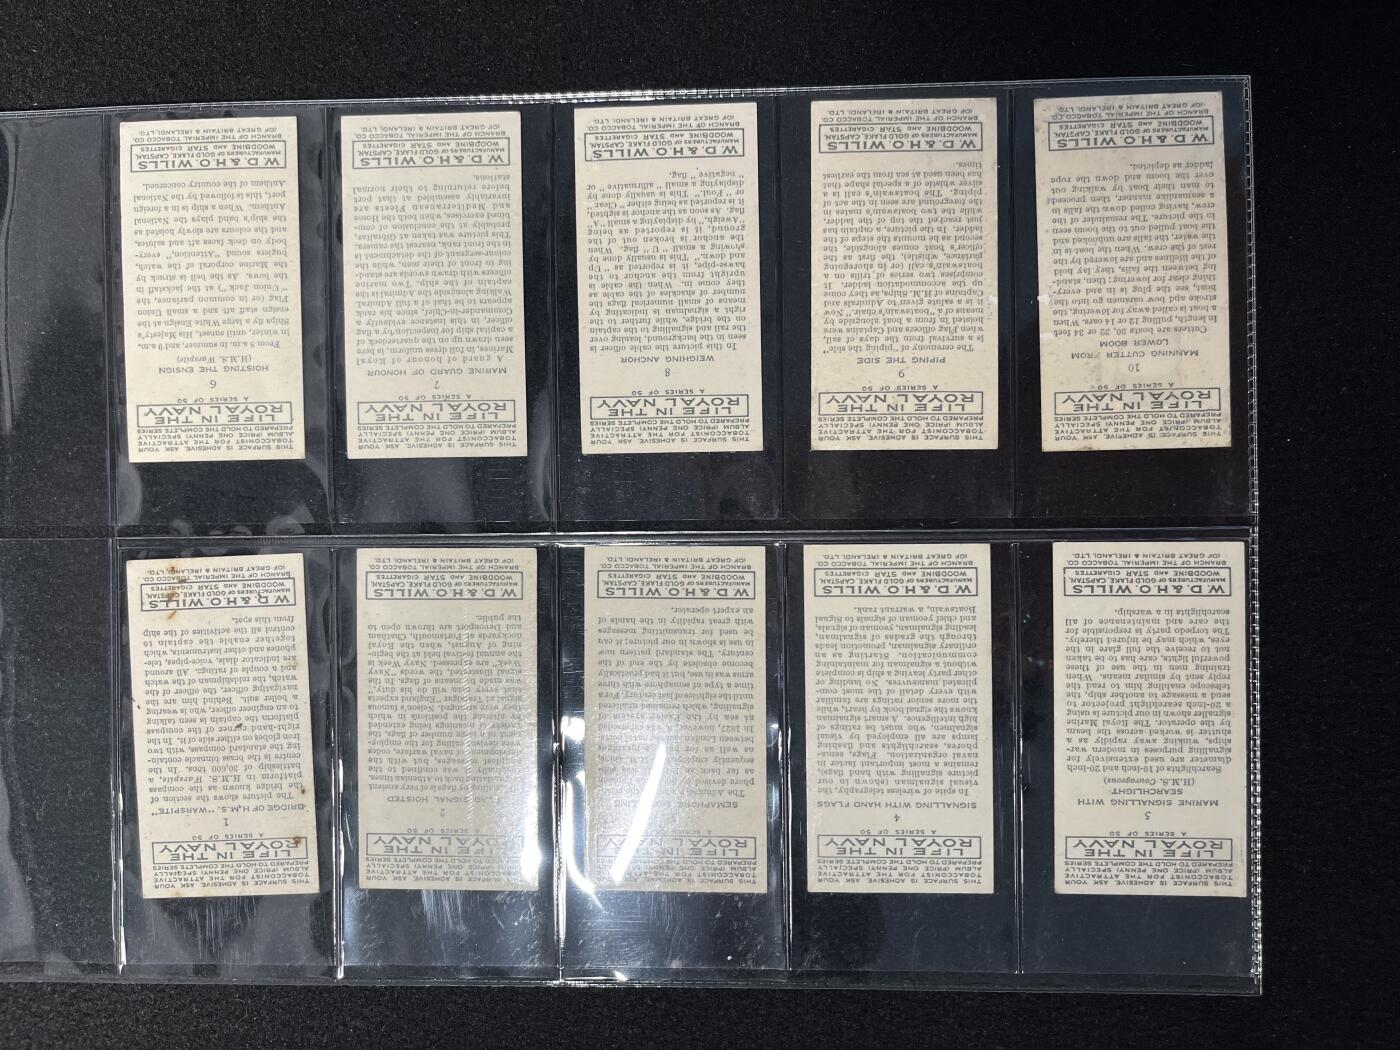 THIS SURFACE IS ADHESIVE. ASK YOUR
TOBACCONIST FOR THE ATTRACTIVE
ALBUM (PRICE ONE PENNY) SPECIALLY
PREPARED TO HOLD THE COMPLETE SERIES
LIFE IN THE
ROYAL NAVY
A SERIES OF 50
1
BRIDGE OF H.M.S. "WARSPITE"
The picture shows the section of
the bridge known as the compass
platform in H.M.S. Warspite, a
battleship of 30,600 tons. In the
centre is the brass binnacle contain-
ing the standard compass, with two
iron globes on either side of it. In the
right-hand corner of the compass
platform the captain is seen talking
to an engineer officer, who is wearing
a boiler suit. Behind him are the
navigating officer, the officer of the
watch, the midshipman of the watch
and a couple of ratings. All around
are indicator dials, voice-pipes, tele-
phones and other instruments, which
together enable the captain to
control all the activities of the ship
from this spot.
W.D. & H.O. WILLS
MANUFACTURERS OF GOLD FLAKE, CAPSTAN,
WOODBINE AND STAR CIGARETTES
BRANCH OF THE IMPERIAL TOBACCO CO.
(OF GREAT BRITAIN & IRELAND), LTD.
THIS SURFACE IS ADHESIVE. ASK YOUR
TOBACCONIST FOR THE ATTRACTIVE
ALBUM (PRICE ONE PENNY) SPECIALLY
PREPARED TO HOLD THE COMPLETE SERIES
LIFE IN THE
ROYAL NAVY
A SERIES OF 50
2
FLAG SIGNAL HOISTED
Signalling by flags is of very ancient
W.D. & H.O. WILLS
MANUFACTURERS OF GOLD FLAKE, CAPSTAN,
WOODBINE AND STAR CIGARETTES
BRANCH OF THE IMPERIAL TOBACCO CO.
(OF GREAT BRITAIN & IRELAND), LTD.
THIS SURFACE IS ADHESIVE. ASK YOUR
TOBACCONIST FOR THE ATTRACTIVE
ALBUM (PRICE ONE PENNY) SPECIALLY
PREPARED TO HOLD THE COMPLETE SERIES
LIFE IN THE
ROYAL NAVY
A SERIES OF 50
SEMAPHORE
century. The standard pattern now
in use is shown in our picture; it can
be used for transmitting messages
with great rapidity in the hands of
an expert operator.
W.D. & H.O. WILLS
MANUFACTURERS OF GOLD FLAKE, CAPSTAN,
WOODBINE AND STAR CIGARETTES
BRANCH OF THE IMPERIAL TOBACCO CO.
(OF GREAT BRITAIN & IRELAND), LTD.
THIS SURFACE IS ADHESIVE. ASK YOUR
TOBACCONIST FOR THE ATTRACTIVE
ALBUM (PRICE ONE PENNY) SPECIALLY
PREPARED TO HOLD THE COMPLETE SERIES
LIFE IN THE
ROYAL NAVY
A SERIES OF 50
4
SIGNALLING WITH HAND FLAGS
In spite of wireless telegraphy, the
visual signalman (shown in our
picture signalling with hand flags),
remains a most important factor in
naval organization. Flags, sema-
phores, searchlights and flashing
lamps are all employed by visual
signalmen, who must be ratings of
high intelligence. A smart signalman
knows the signal book by heart, while
the more senior ratings are familiar
with every detail of the most com-
plicated manœuvres. No landing or
other party leaves a ship or squadron
without a signalman for maintaining
communication. Starting as an
ordinary signalman, promotion leads
through the grades of signalman,
leading signalman, yeoman of signals,
and chief yeoman of signals to Signal
Boatswain, a warrant rank.
W.D. & H.O. WILLS
MANUFACTURERS OF GOLD FLAKE, CAPSTAN,
WOODBINE AND STAR CIGARETTES
BRANCH OF THE IMPERIAL TOBACCO CO.
(OF GREAT BRITAIN & IRELAND), LTD.
THIS SURFACE IS ADHESIVE. ASK YOUR
TOBACCONIST FOR THE ATTRACTIVE
ALBUM (PRICE ONE PENNY) SPECIALLY
PREPARED TO HOLD THE COMPLETE SERIES
LIFE IN THE
ROYAL NAVY
A SERIES OF 50
5
MARINE SIGNALLING WITH
SEARCHLIGHT
(H.M.S. Courageous)
Searchlights of 10-inch and 20-inch
diameter are used extensively for
signalling purposes in modern war-
ships, winking away rapidly as a
shutter is worked across the beam
by the operator. The Royal Marine
signaller shown in our picture is using
a 20-inch searchlight projector to
send a message to another ship, the
telescope enabling him to read the
reply sent by similar means. When
training men in the use of these
powerful lights, care has to be taken
not to receive the full glare in the
eyes, which may be injured thereby.
The torpedo party is responsible for
the care and maintenance of all
searchlights in a warship.
W.D. & H.O. WILLS
MANUFACTURERS OF GOLD FLAKE, CAPSTAN,
WOODBINE AND STAR CIGARETTES
BRANCH OF THE IMPERIAL TOBACCO CO.
(OF GREAT BRITAIN & IRELAND), LTD.
THIS SURFACE IS ADHESIVE. ASK YOUR
TOBACCONIST FOR THE ATTRACTIVE
ALBUM (PRICE ONE PENNY) SPECIALLY
PREPARED TO HOLD THE COMPLETE SERIES
LIFE IN THE
ROYAL NAVY
A SERIES OF 50
6
HOISTING THE ENSIGN
(H.M.S. Warspite)
From 8 a.m. in summer, and 9 a.m.
in winter, until sunset, His Majesty's
Ships fly a large White Ensign at the
ensign staff aft and a small Union
Flag (or in common parlance, the
"Union Jack") at the jackstaff in
the bows. As the bell is struck by
the Marine corporal of the watch,
buglers sound "Attention," every-
body on deck faces aft and salutes,
and the colours are slowly hoisted as
the ship's band plays the National
Anthem. When a ship is in a foreign
port, this is followed by the National
Anthem of the country concerned.
W.D. & H.O. WILLS
MANUFACTURERS OF GOLD FLAKE, CAPSTAN,
WOODBINE AND STAR CIGARETTES
BRANCH OF THE IMPERIAL TOBACCO CO.
(OF GREAT BRITAIN & IRELAND), LTD.
THIS SURFACE IS ADHESIVE. ASK YOUR
TOBACCONIST FOR THE ATTRACTIVE
ALBUM (PRICE ONE PENNY) SPECIALLY
PREPARED TO HOLD THE COMPLETE SERIES
LIFE IN THE
ROYAL NAVY
A SERIES OF 50
7
MARINE GUARD OF HONOUR
A guard of honour of Royal
Marines, in full dress uniform, is here
seen drawn up on the quarterdeck of
a capital ship for inspection by a flag
officer, in this instance evidently a
Commander-in-Chief, since his rank
appears to be that of a full Admiral.
Walking alongside the Admiral is the
captain of the ship. Two marine
officers with drawn swords are stand-
ing in front of their men, while the
colour-sergeant of the detachment is
in the front rank, nearest the camera.
This picture was taken at Gibraltar,
probably at the conclusion of com-
bined exercises, when both the Home
and Mediterranean Fleets are
invariably assembled at that port
before returning to their normal
stations.
W.D. & H.O. WILLS
MANUFACTURERS OF GOLD FLAKE, CAPSTAN,
WOODBINE AND STAR CIGARETTES
BRANCH OF THE IMPERIAL TOBACCO CO.
(OF GREAT BRITAIN & IRELAND), LTD.
THIS SURFACE IS ADHESIVE. ASK YOUR
TOBACCONIST FOR THE ATTRACTIVE
ALBUM (PRICE ONE PENNY) SPECIALLY
PREPARED TO HOLD THE COMPLETE SERIES
LIFE IN THE
ROYAL NAVY
A SERIES OF 50
8
WEIGHING ANCHOR
In this picture the cable officer is
seen in the background, leaning over
the rail and signalling to the captain
on the bridge, while further to the
right a signalman is indicating by
means of small numerical flags the
number of shackles of the cable as
they come in. When the cable is
upright from the anchor to the
hawse-pipe, it is reported as "Up
and down." This is usually done by
showing a small "U" flag. When
the anchor is broken out of the
ground, it is reported as being
"Aweigh," by displaying a small "A"
flag. As soon as the anchor is sighted,
it is reported as being either "Clear"
or "Foul." This is usually done by
displaying a small "affirmative" or
"negative" flag.
W.D. & H.O. WILLS
MANUFACTURERS OF GOLD FLAKE, CAPSTAN,
WOODBINE AND STAR CIGARETTES
BRANCH OF THE IMPERIAL TOBACCO CO.
(OF GREAT BRITAIN & IRELAND), LTD.
THIS SURFACE IS ADHESIVE. ASK YOUR
TOBACCONIST FOR THE ATTRACTIVE
ALBUM (PRICE ONE PENNY) SPECIALLY
PREPARED TO HOLD THE COMPLETE SERIES
LIFE IN THE
ROYAL NAVY
A SERIES OF 50
9
PIPING THE SIDE
The ceremony of "piping the side"
is a survival from the days of sail,
when Flag officers and Captains were
hoisted in from a boat alongside by
means of a "boatswain's chair." Now
it is a salute given to Admirals and
Captains of H.M. Ships, as they come
up the accommodation ladder. It
comprises two series of trills on a
boatswain's call (or in shoregoing
parlance, whistle), the first as the
officer's boat comes alongside, the
second as he mounts the steps of the
ladder. In the picture, a captain has
just reached the top of the ladder,
while the two boatswain's mates in
the foreground are seen in the act of
piping. The boatswain's call is a
silver whistle of a special shape that
has been used at sea from the earliest
times.
W.D. & H.O. WILLS
MANUFACTURERS OF GOLD FLAKE, CAPSTAN,
WOODBINE AND STAR CIGARETTES
BRANCH OF THE IMPERIAL TOBACCO CO.
(OF GREAT BRITAIN & IRELAND), LTD.
THIS SURFACE IS ADHESIVE. ASK YOUR
TOBACCONIST FOR THE ATTRACTIVE
ALBUM (PRICE ONE PENNY) SPECIALLY
PREPARED TO HOLD THE COMPLETE SERIES
LIFE IN THE
ROYAL NAVY
A SERIES OF 50
10
MANNING CUTTER FROM
LOWER BOOM
Cutters are boats 30, 32 or 34 feet
in length, pulling 12 or 14 oars. When
a boat is called away for lowering, the
stroke and bow oarsmen go into the
boat, see the plug is in and every-
thing clear for lowering; then, stand-
ing between the falls, they lay hold
of the lifelines and are lowered by the
rest of the crew. When the boat is in
the water, the falls are unhooked and
the boat pulled out to the boom seen
in the picture. The remainder of the
crew, having coiled down the falls in
a seamanlike manner, then proceed
to man their boat by walking out
over the boom and down the rope
ladder as depicted.
W.D. & H.O. WILLS
MANUFACTURERS OF GOLD FLAKE, CAPSTAN,
WOODBINE AND STAR CIGARETTES
BRANCH OF THE IMPERIAL TOBACCO CO.
(OF GREAT BRITAIN & IRELAND), LTD.